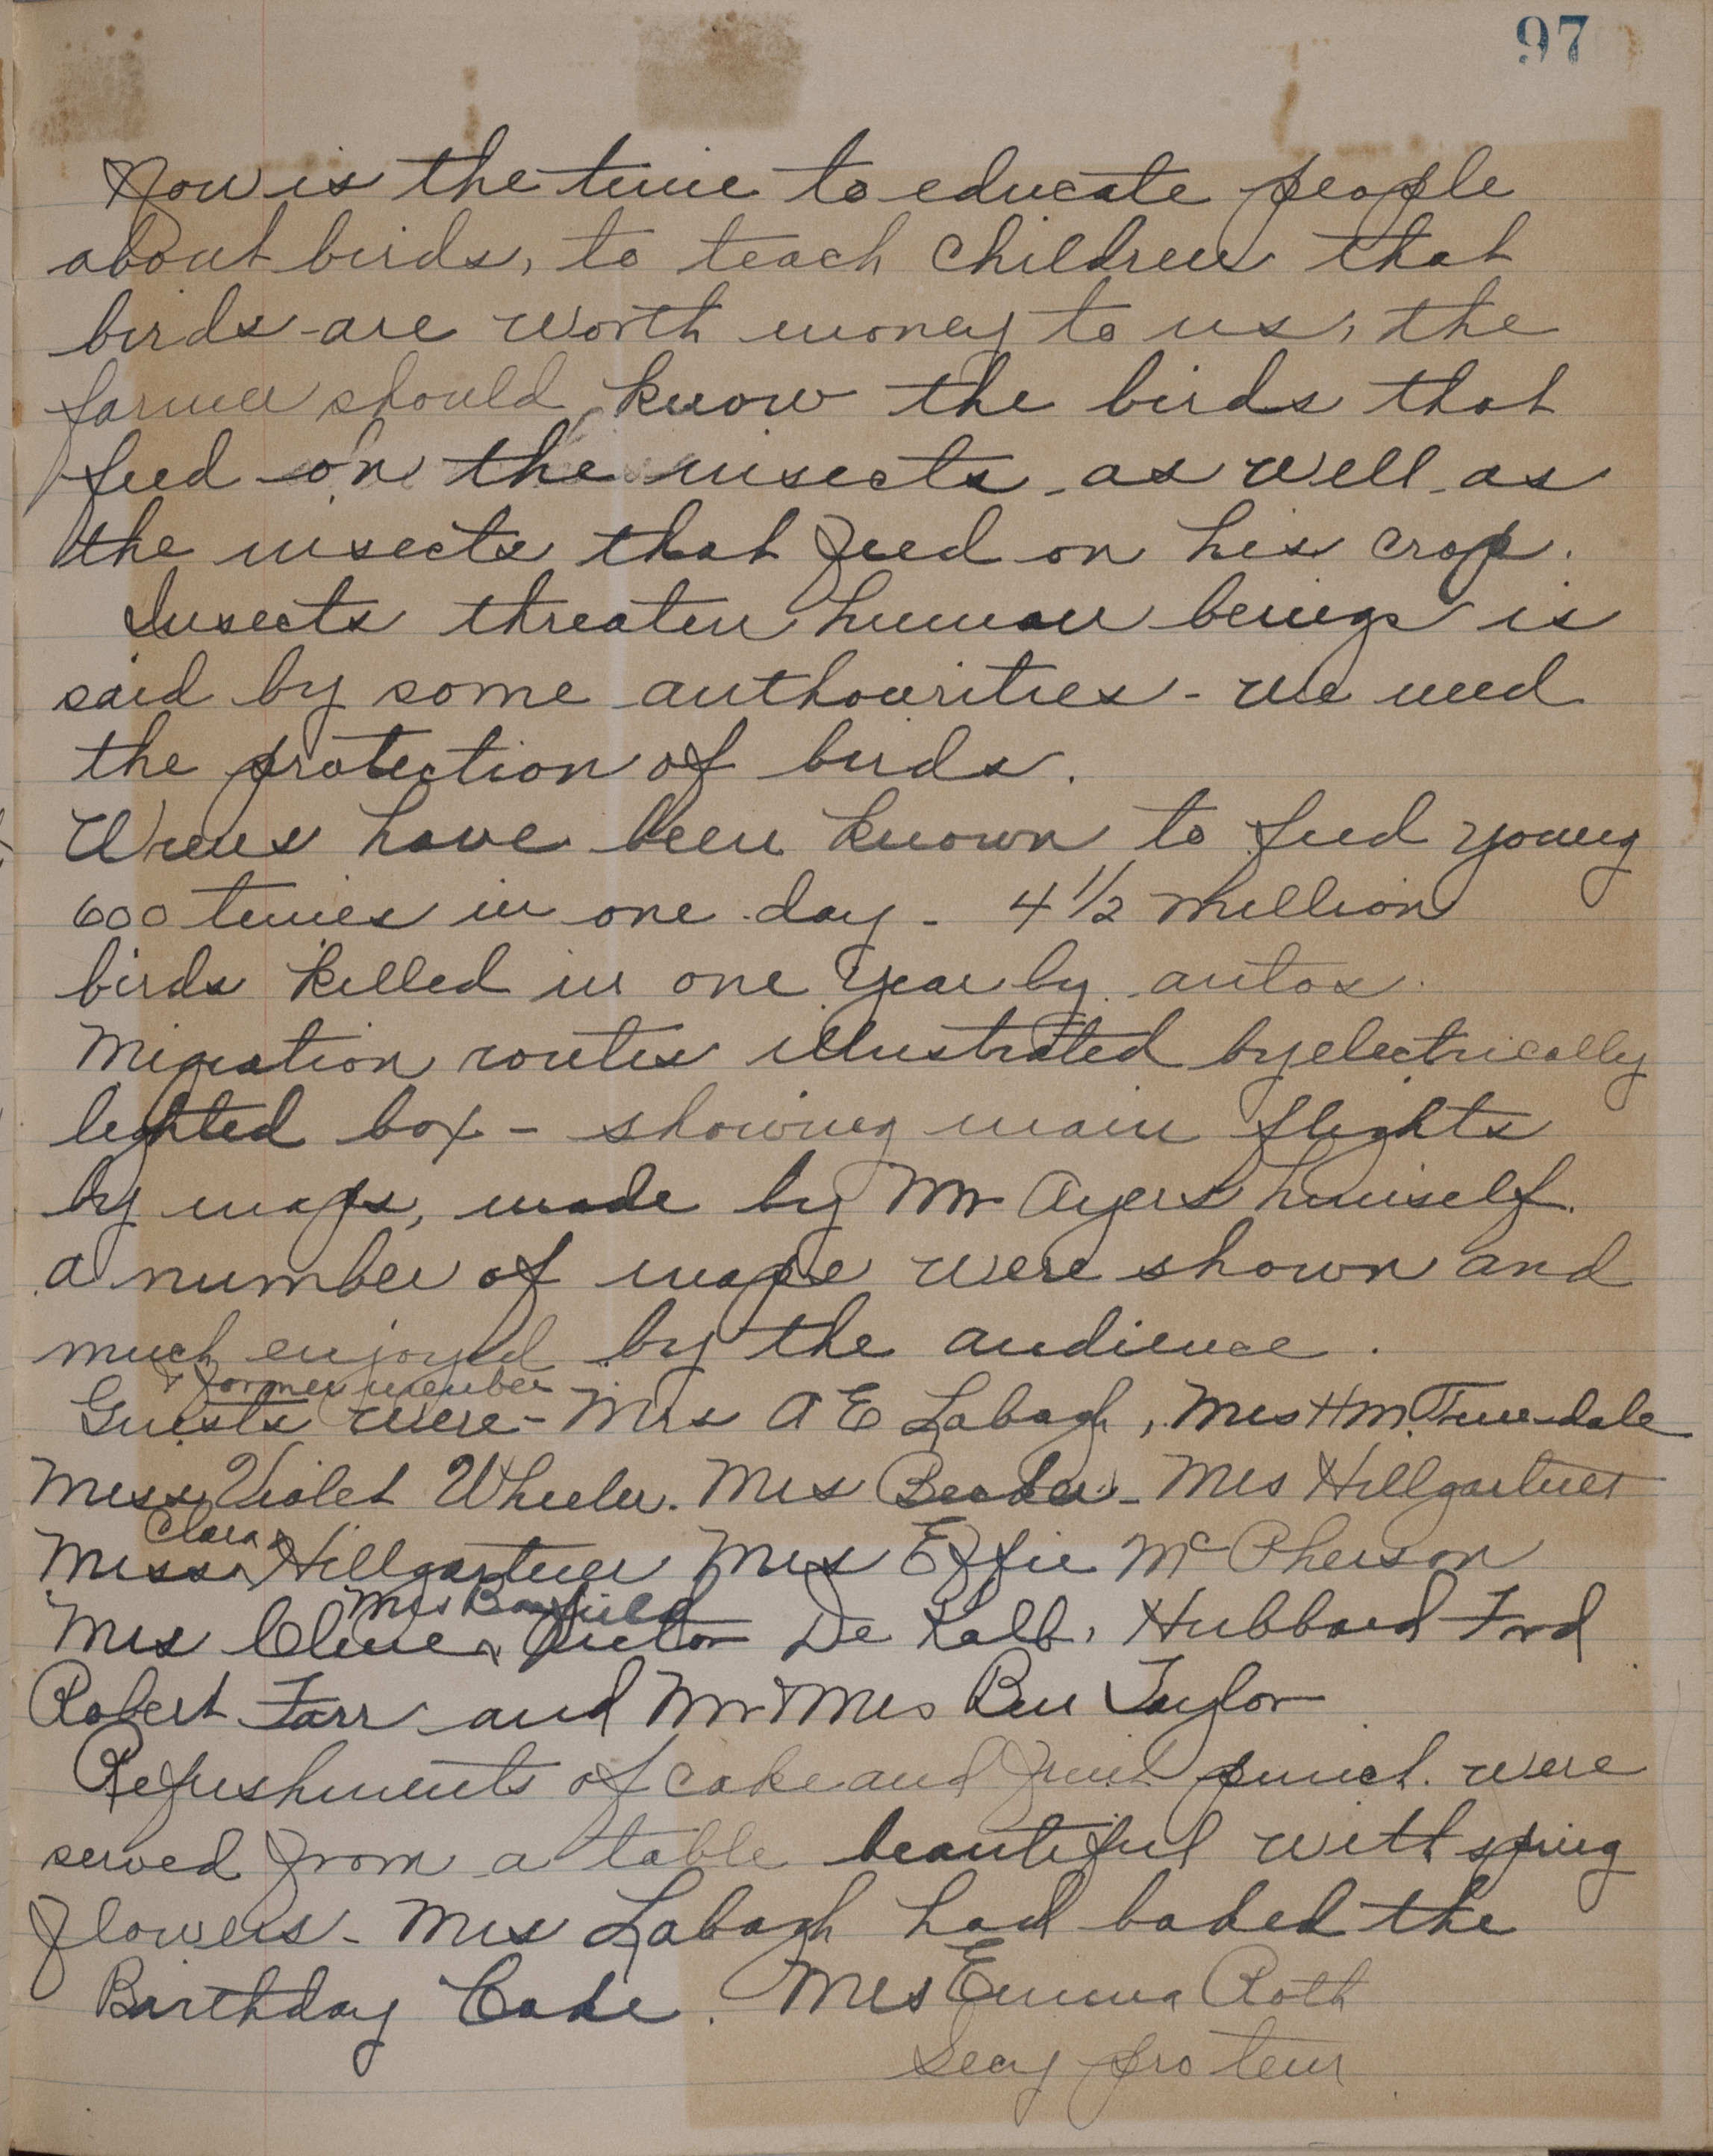 97
Now is the time to educate people
about birds, to teach children that
birds are worth money to us, the
farmer should know the birds that
feed on the insects as well as
the insects that feed on his crop.
Insects threaten human beings is
said by some authourities - we need
the protection of birds.
Wrens have been known to feed young
600 times in one day - 4 1/2 million
birds killed in one year by autos.
Migration routes illustrated by electrically
lighted box - showing main flights
by maps, made by Mr Ayers himself.
a number of maps were shown and
much enjoyed by the audience.
& former member
Guests were - Mrs A E Labagh, Mrs H M. Tweedale
Miss Violet Wheeler. Mrs Becker - Mrs Hillgartner
Clara
Miss Hillgartner Mrs Effie McPherson
Mrs Banfield
Mrs Cline Victor De Kalb, Hubbard Ford
Robert Farr and Mr & Mrs Ben Taylor
Refreshments of cake and fruit punch were
served from a table beautiful with spring
flowers - Mrs Labagh had baked the
Birthday Cake. Mrs Emma Roth
Secy pro tem